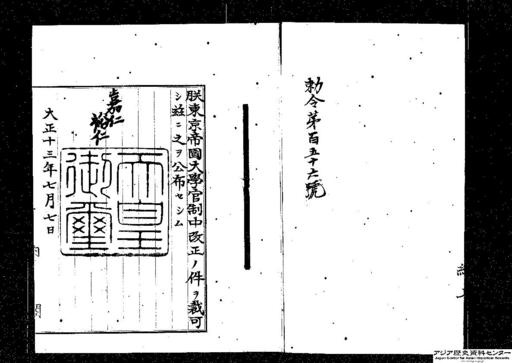 勅令第百五十六號
朕東京帝國大學官制中改正ノ件ヲ裁可
シ茲ニ之ヲ公布セシム
嘉仁
裕仁
天皇
御璽
大正十三年七月七日
内閣
アジア歴史資料センター
Japan Center for Asian Historical Records